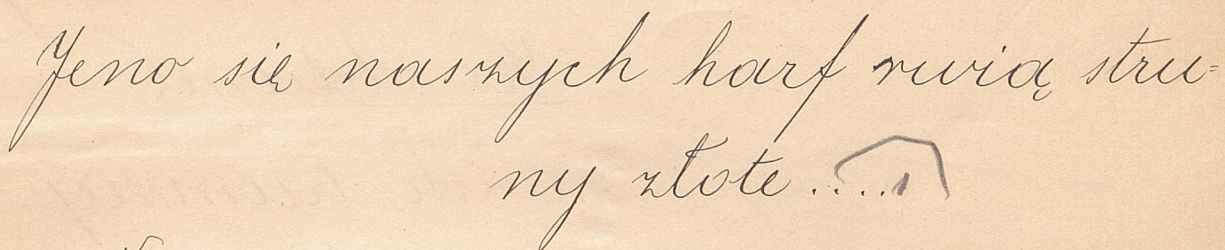 Jeno się naszych harf rwią stru=
ny złote.....